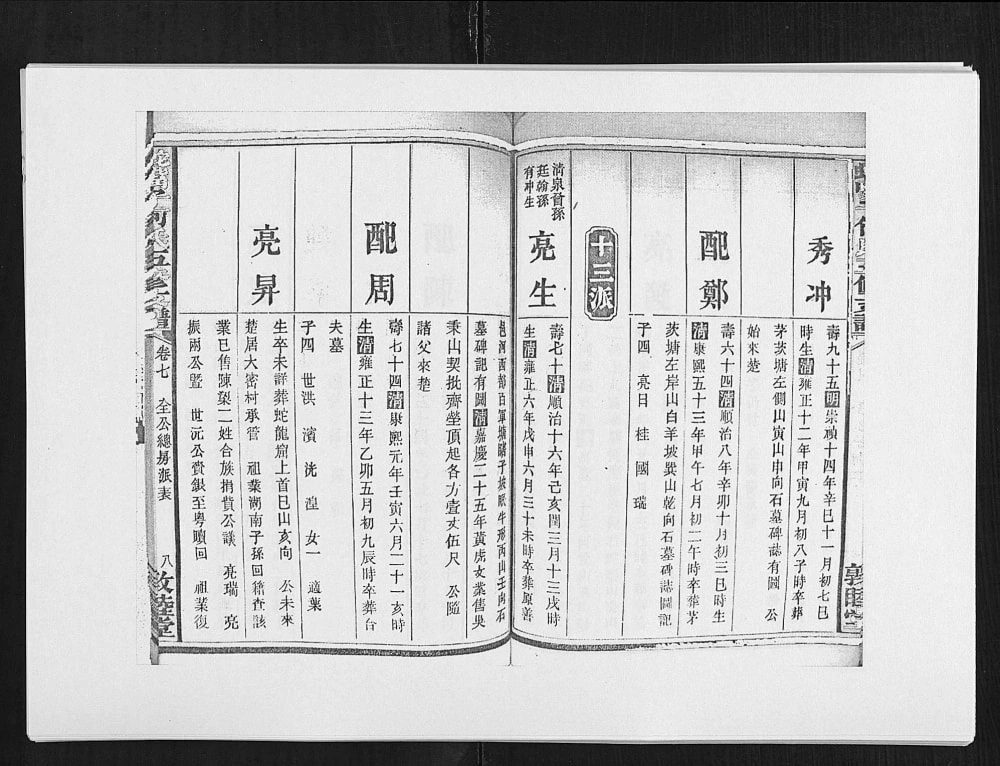 秀冲
壽九十五明崇禎十四年辛巳十一月初七巳
時生清雍正十二年甲寅九月初八子時卒葬
茅茨塘左側山寅山申向石墓碑誌有圖　公
始來楚
配鄭
壽六十四清順治八年辛卯十月初三巳時生
清康熙五十三年甲午七月初二午時卒葬茅
茨塘左岸山白羊坡巽山乾向石墓碑誌圖記
子四　亮日　桂　國　瑞
十三派
清泉首孫
廷翰孫
有冲生
亮生
壽七十清順治十六年己亥閏三月十三戌時
生清雍正六年戊申六月三十未時卒葬原善
邑河西
牛形丙山壬向石
墓碑記有圖清嘉慶二十五年黃虎文業售吳
秉山契批齊塋頂起各方壹丈伍尺　公隨
諸父來楚
配周
壽七十四清康熙元年壬寅六月二十一亥時
生清雍正十三年乙卯五月初九辰時卒葬台
夫墓
子四　世洪　濱　洸　湟　女一　適葉
亮昇
生卒未詳葬蛇龍窟上首巳山亥向　公未來
楚居大密村承管　祖業湖南子孫回籍查該
業已售陳梁二姓合族捐貲公議　亮瑞　亮
振兩公暨　世沅公賫銀至粵贖回　祖業復
卷七　全公總房派表
八　敦睦堂
敦睦堂